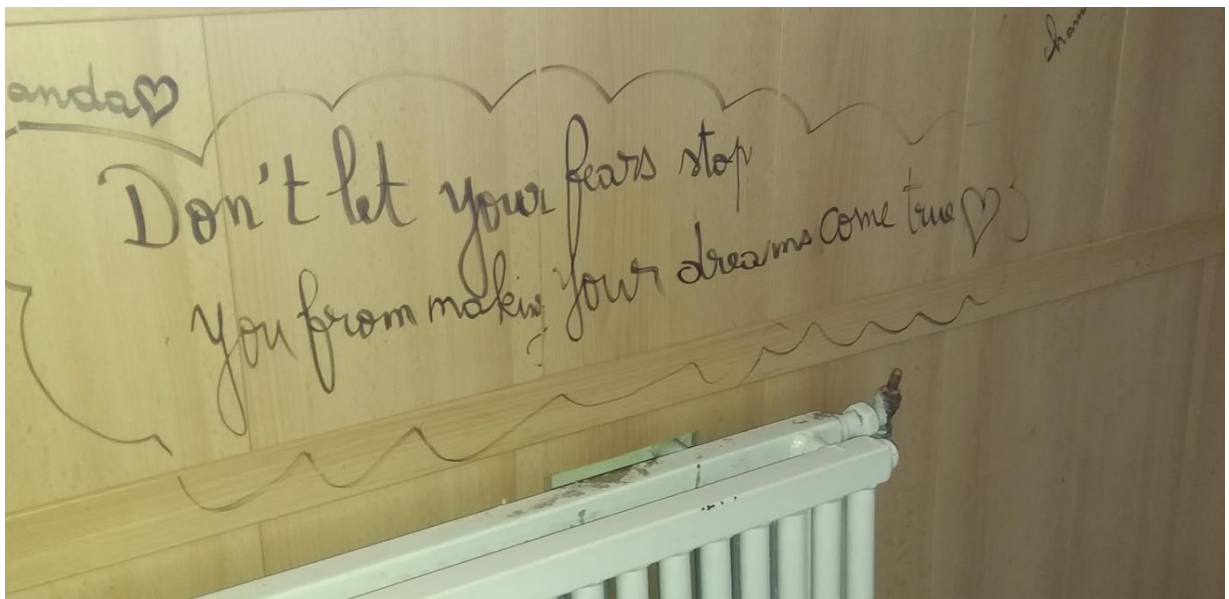 anda♡
Don't let your fears stop
you from making your dreams come true♡
cham